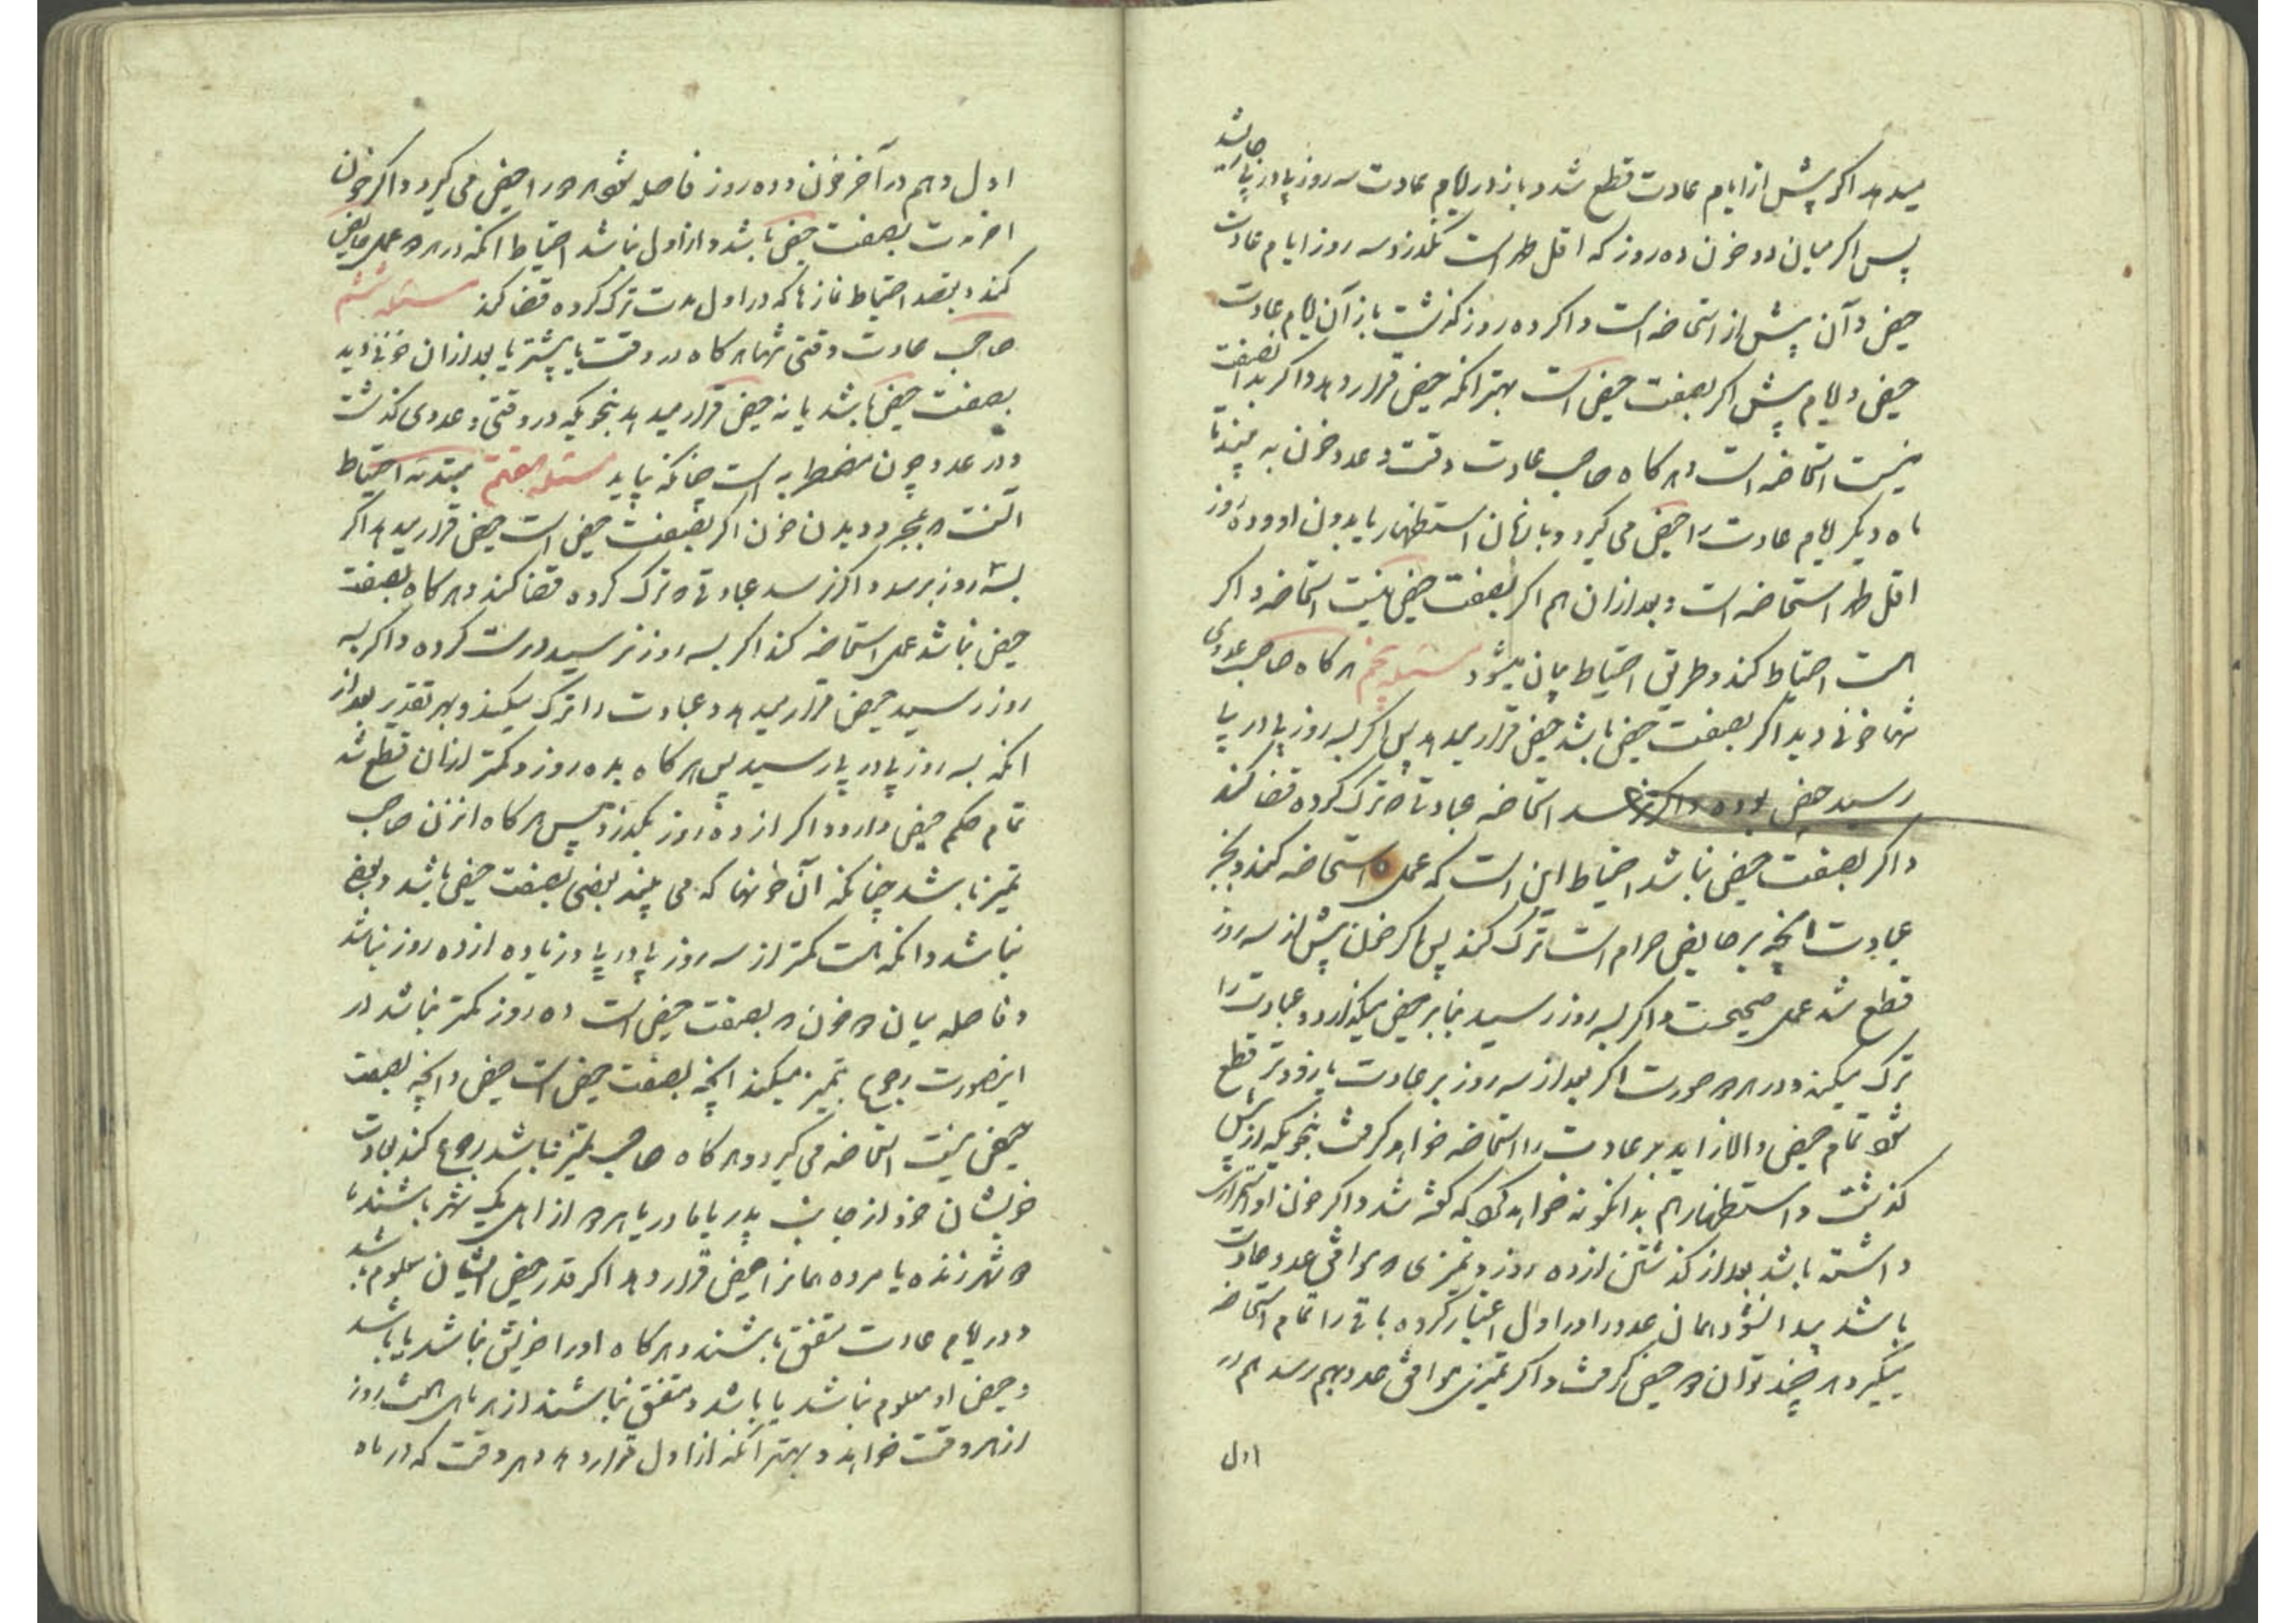 میدهد اگر پیش از ایام عادت قطع شد و باز در ایام عادت سه روز پا در پا حایض شد
پس اگر میان دو خون ده روز که اقل طهر است نگذرد سه روز ایام عادت
حیض و آن پیش از استحاضه است و اگر ده روز گذشت باز آن ایام عادت
حیض و ایام پیش اگر بصفت حیض است بهتر انکه حیض قرار دهد و اگر بصفت
نیست استحاضه است و هرگاه صاحب عادت وقت و عدد خون به بیند تا
ماه دیگر ایام عادت را حیض می گیرد و با زمان استظهار یا بدون او و ده روز
اقل طهر استحاضه است و بعد از ان هم اگر بصفت حیض نیست استحاضه و اگر
است احتیاط کند و طریق احتیاط بیان میشود مسئله پنجم هرگاه صاحب عددی
تنها خونی دید اگر بصفت حیض باشد حیض قرار میدهد پس اگر بسه روز پا در پا
رسید حیض بوده و اگر نرسد استحاضه عباداتی که ترک کرده قضا کند
و اگر بصفت حیض نباشد احتیاط این است که عمل استحاضه کند و بجز
عبادت انچه بر حایض حرام است ترک کند پس اگر خون پیش از سه روز
قطع شد عمل صحیحست و اگر بسه روز رسید بنا بر حیض میگذارد و عبادت را
ترک میکند و در هر دو صورت اگر بعد از سه روز بر عادت یا زودتر قطع
شد تمام حیض و الا زاید بر عادت را استحاضه خواهد گرفت بنحویکه از پیش
گذشت و استظهار هم بدانگونه خواهد که گفته شد و اگر خون او استمرار
داشته باشد بعد از گذشتن از ده روز و تمیزی که موافق عدد عادت
باشد پیدا نشود همان عدد را در اول اعتبار کرده باقی را تمام استحاضه
میگیرد هر چند توان حیض گرفت و اگر تمیزی موافق عدد بهم رسد هم در
اول
اول و هم در آخر خون و ده روز فاصله شود هر دو را حیض می گیرد و اگر خون
اخر مدت بصفت حیض باشد و از اول نباشد احتیاط انکه در هر دو عمل حایض
کند و بقصد احتیاط نمازها که در اول مدت ترک کرده قضا کند مسئله ششم
صاحب عادت وقتی تنها هرگاه در وقت یا پیشتر یا بعد از ان خونی دید
بصفت حیض باشد یا نه حیض قرار میدهد بنحویکه در وقتی و عددی گذشت
و در عدد چون مضطربه است چنانکه بیاید مسئله هفتم مبتدئه احتیاط
انست که بمجرد دیدن خون اگر بصفت حیض است حیض قرار میدهد اگر
بسه روز برسد و اگر نرسد عباداتی که ترک کرده قضا کند و هرگاه بصفت
حیض نباشد عمل استحاضه کند اگر بسه روز نرسید درست کرده و اگر بسه
روز رسید حیض قرار میدهد و عبادت را ترک میکند و بهر تقدیر بعد از
انکه بسه روز پا در پا رسید پس هرگاه بده روز و کمتر از ان قطع شد
تمام حکم حیض دارد و اگر از ده روز بگذرد پس هرگاه ان زن صاحب
تمیز باشد چنانکه آن خونها که می بیند بعضی بصفت حیض باشد و بعضی
نباشد و انکه هست کمتر از سه روز پا در پا و زیاده از ده روز نباشد
و فاصله میان دو خون که بصفت حیض است ده روز کمتر نباشد در
اینصورت رجوع بتمیز میکند انچه بصفت حیض است حیض و انچه بصفت
حیض نیست استحاضه می گیرد و هرگاه صاحب تمیز نباشد رجوع کند بعادت
خویشان خود از جانب پدر یا مادر یا هر دو از اهل یک شهر باشند یا
دو شهر زنده یا مرده همانرا حیض قرار دهد اگر قدر حیض ایشان معلوم باشد
و در ایام عادت متفق باشند و هرگاه او را خویش نباشد یا باشد
و حیض او معلوم نباشد یا باشد و متفق نباشند از هر ماهی هفت روز
از هر وقت خواهد و بهتر انکه از اول قرار دهد و هر وقت که در ماه